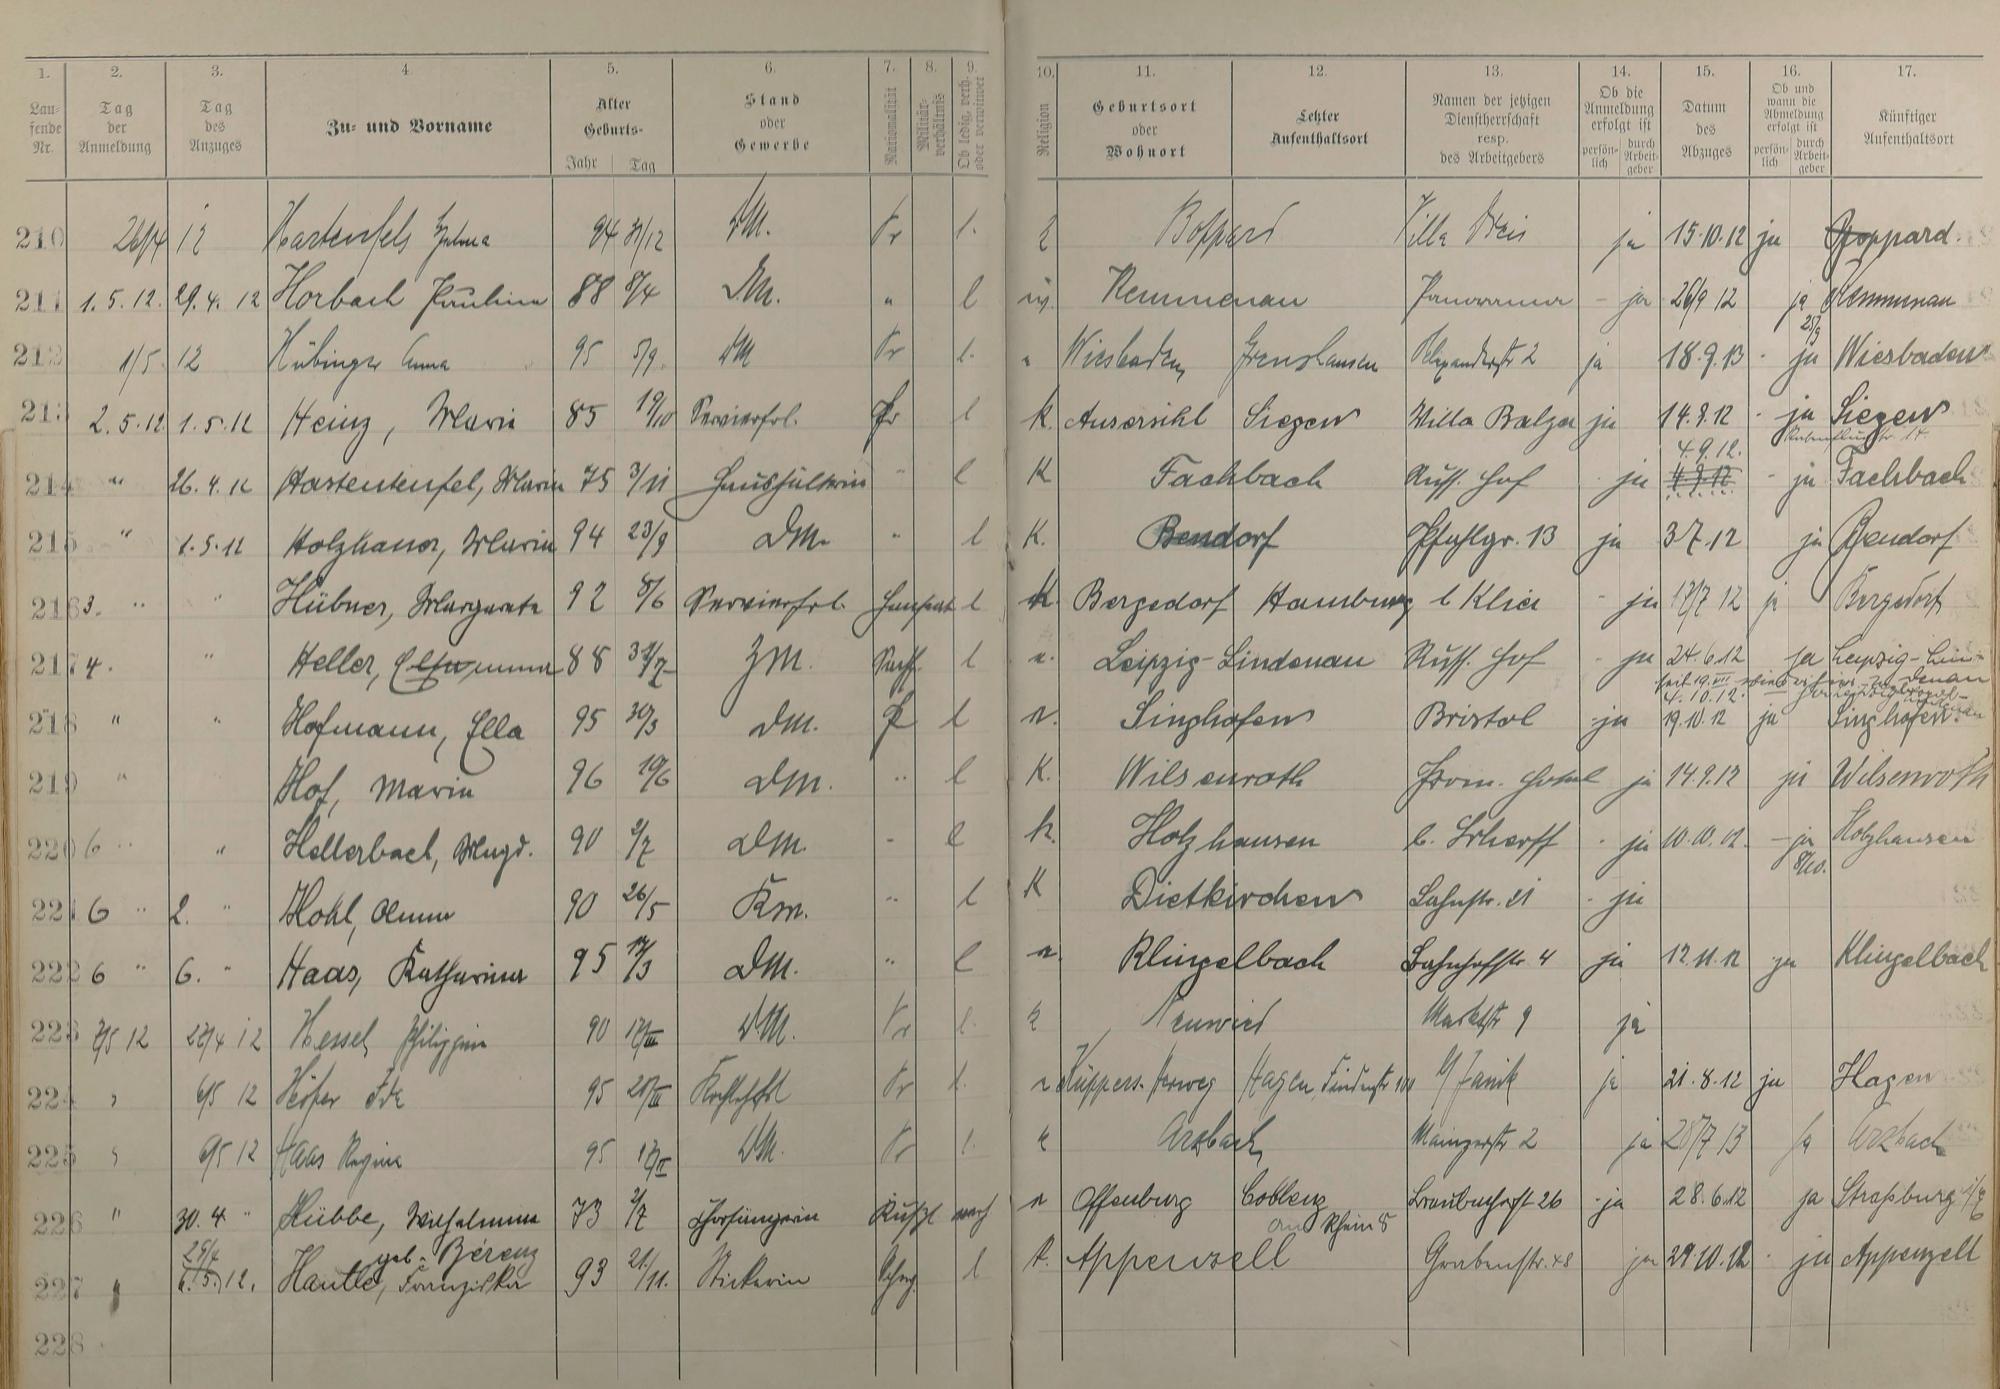 1. 2. 3. 4. 5. 6. 7. 8. 9. 10. 11. 12. 13. 14. 15. 16. 17.
Laufende Nr. Tag der Anmeldung Tag des Anzuges Zu- und Vorname Alter Geburts- Jahr Tag Stand oder Gewerbe Nationalität Militärverhältnis Ob ledig, verh. oder verwitwet Religion Geburtsort oder Wohnort Letzter Aufenthaltsort Namen der jetzigen Dienstherrschaft resp. des Arbeitgebers Ob die Anmeldung erfolgt ist persönlich durch Arbeitgeber Datum des Abzuges Ob und wann die Abmeldung erfolgt ist persönlich durch Arbeitgeber Künftiger Aufenthaltsort
210 26/4 12 Hartenfels 94 31/12 DM. Pr l. Boppard Villa ja 15.10.12 ja Boppard.
211 1.5.12. 29.4.12 Horbach Paulina 88 8/4 DM. " l Kemmenau Panorama - ja 26/9 12 ja Kemmenau
25/9
212 1/5 12 Hübinger Anna 95 5/9. DM Pr l. " Wiesbaden Grenzhausen Alexanderstr 2 ja 18.9.13 - ja Wiesbaden
213 2.5.12 1.5.12 Heinz, Maria 85 19/10 Servierfrl. Pr l K. Ausersihl Siegen Villa Balzer ja 14.8.12 - ja Siegen
4.9.12.
214 " 26.4.12 Hastenteufel, Maria 75 3/11 Haushälterin " l K Fachbach Russ. Hof - ja 4.9.12 - ja Fachbach
215 " 1.5.12 Holzhauer, Maria 94 23/9 DM. " l K. Bendorf Pfahlgr. 13 ja 3.7.12 ja Bendorf
216 3. " " Hübner, Margareta 92 8/6 Servierfrl. l K. Bergedorf Hamburg b Klier - ja 17/7 12 ja Bergedorf
217 4. " Heller, 88 31/7 ZM. l Leipzig-Lindenau Russ. Hof - ja 24.6.12 ja Leipzig-Lindenau
4.10.12.
218 " " Hofmann, Ella 95 30/3 DM. l Singhofen Bristol - ja 19.10.12 ja Singhofen.
219 " Hof, Maria 96 19/6 DM. " l K. Wilsenroth Prom. Hotel ja 14.9.12 ja Wilsenroth
220 6 " " Hellerbach, Magd. 90 2/7 DM. - l K. Holzhausen - ja 10.10.12. - ja Holzhausen
8/10.
221 6 " 2. " Hohl, Anna 90 26/5 Km. " l K Dietkirchen Lahnstr. 21 - ja
222 6 " 6. " Haas, Katharina 95 DM. " l Klingelbach Bahnhofstr. 4 ja 12.11.12 ja Klingelbach
223 7/5 12 4 12 Hessel Philippine 90 17/III DM. Pr l. Neuwied Marktstr 9 ja
224 " 6/5 12 Höfer Ida 95 Pr l. Küppers-Herweg Hagen, ja 21.8.12 ja Hagen
225 " 6/5 12 Haas Regina 95 DM. Pr l. Arzbach Mainzerstr 2 ja 28/7 13 ja Arzbach
226 " 30.4 " Hübbe, Wilhelmine 73 2/7 Chorsängerin Offenburg Coblenz - ja 28.6.12 ja Straßburg
geb. Bérenz an Rhein 8
227 " 29/4 6.5.12. Hautle, Franziska 93 21./11. Stickerin l Appenzell Grabenstr. 48 ja 29.10.12 - ja Appenzell
228